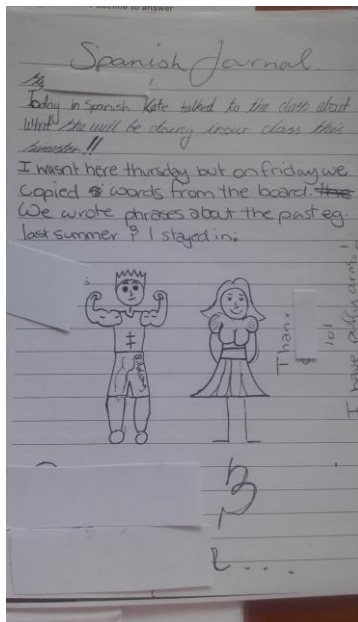 Decline to answer
Spanish Journal.
Today in Spanish Kate talked to the class about
what she will be doing in our class this
semester!!
I wasnt here thursday but on friday we
copied words from the board.
We wrote phrases about the past eg.
last summer & I stayed in.
Than
lol
I have puffy arms!